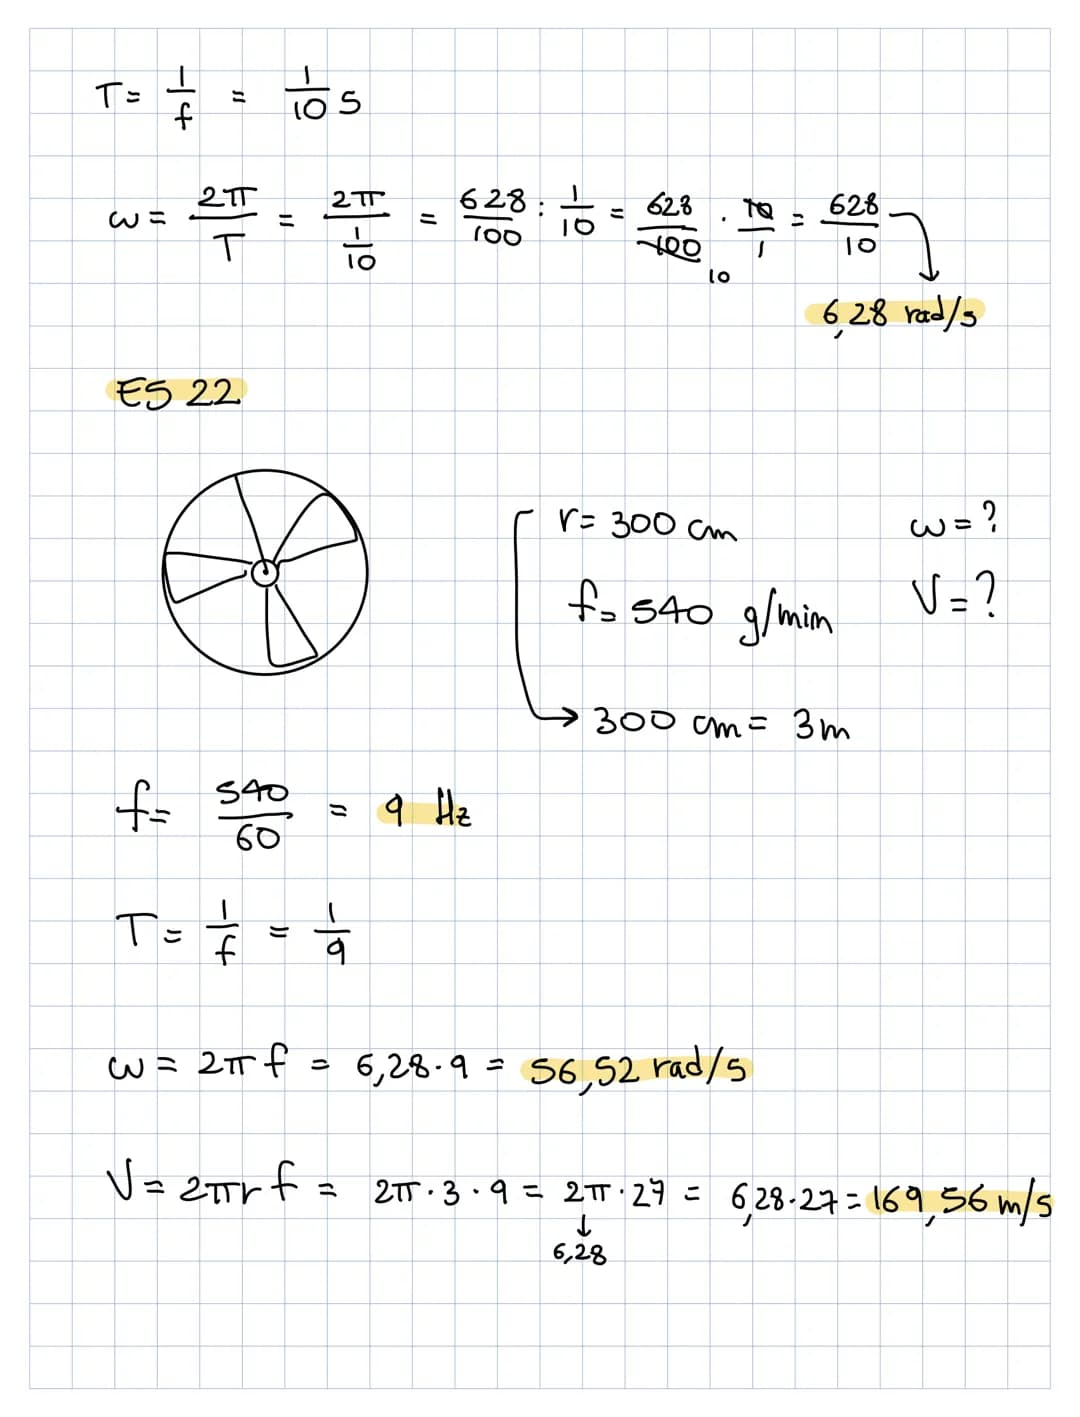 T = 1/f = 1/10 s
ω = 2π/T = 2π/(1/10) = 628/100 : 1/10 = 628/100 10 · 10/1 = 628/10
6,28 rad/s
ES 22
r = 300 cm ω = ?
f = 540 g/min V = ?
→ 300 cm = 3m
f = 540/60 = 9 Hz
T = 1/f = 1/9
ω = 2π f = 6,28 · 9 = 56,52 rad/s
V = 2πr f = 2π · 3 · 9 = 2π · 27 = 6,28 · 27 = 169,56 m/s
↓
6,28